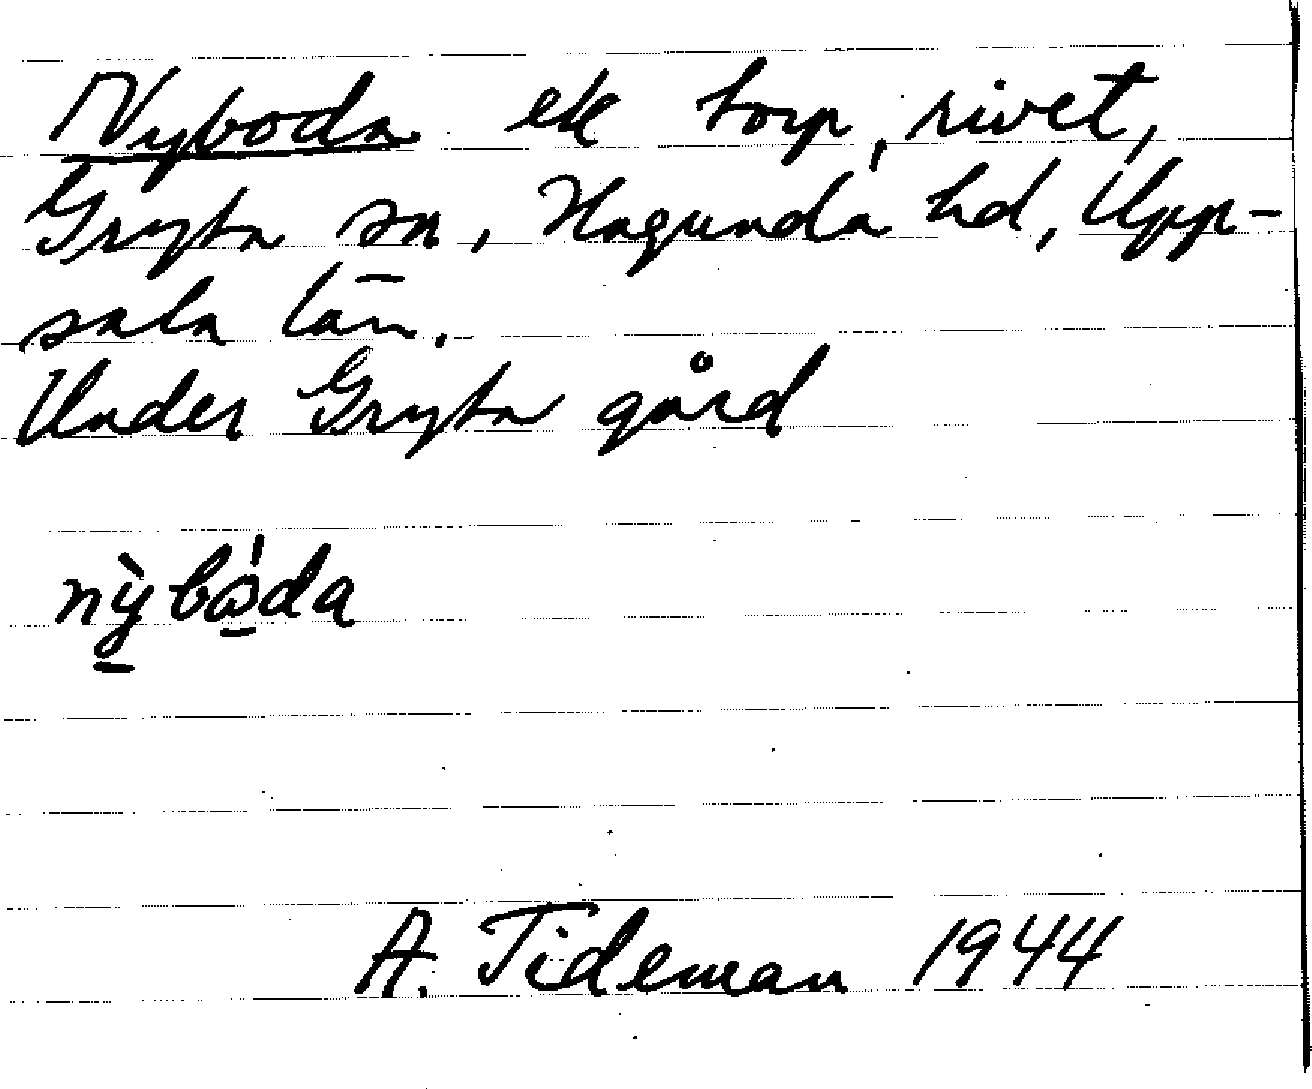 Nyboda ek torp, rivet,
Gryta sn, Hagunda hd, Upp-
sala län.
Under Gryta gård
nỳ̠bώ̠da
A. Tideman 1944